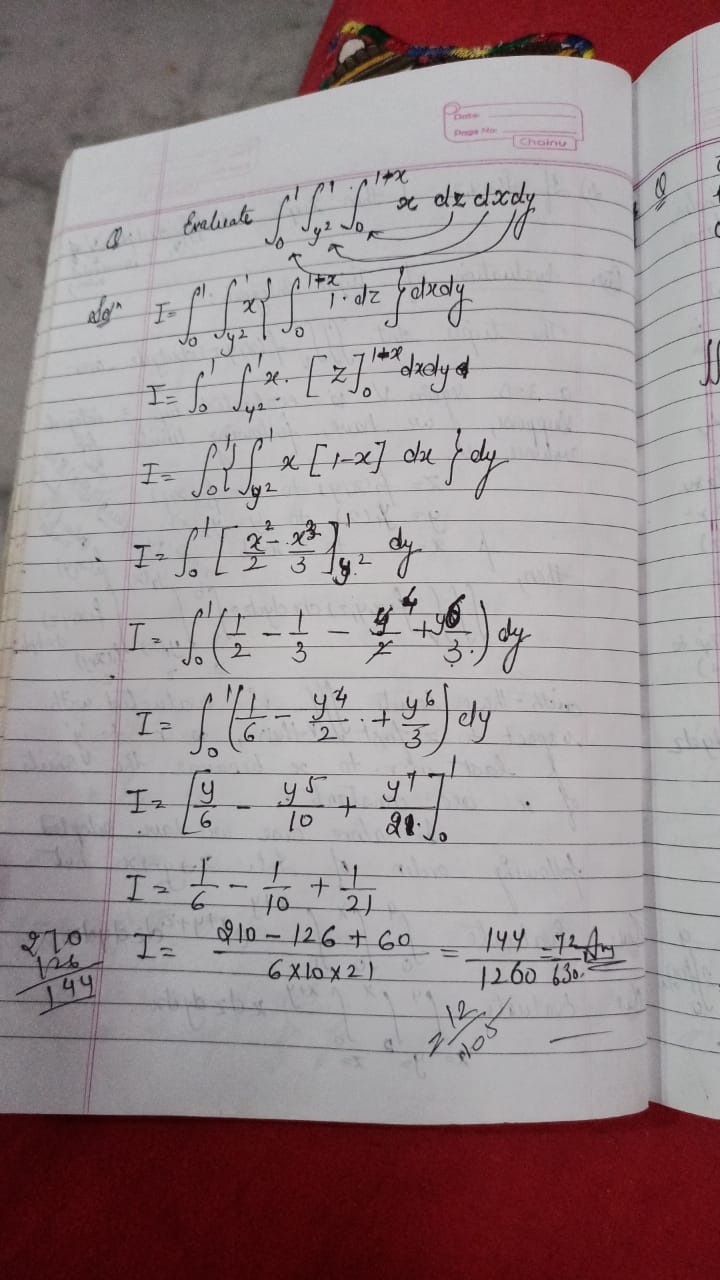 Date:
Page No:
Chainu
Q Evaluate ∫₀¹ ∫_{y²}¹ ∫₀^{1-x} x dz dxdy
Solⁿ I = ∫₀¹ ∫_{y²}¹ x { ∫₀^{1-x} 1·dz } dxdy
I = ∫₀¹ ∫_{y²}¹ x · [z]₀^{1-x} dxdy
I = ∫₀¹ { ∫_{y²}¹ x [1-x] dx } dy
I = ∫₀¹ [ x²/2 - x³/3 ]_{y²}¹ dy
I = ∫₀¹ ( 1/2 - 1/3 - y⁴/2 + y⁶/3 ) dy
I = ∫₀¹ ( 1/6 - y⁴/2 + y⁶/3 ) dy
I = [ y/6 - y⁵/10 + y⁷/21 ]₀¹
I = 1/6 - 1/10 + 1/21
I = (210 - 126 + 60)/(6×10×21) = 144/1260 = 72/630 Ans
270
126
144
12/105
Q